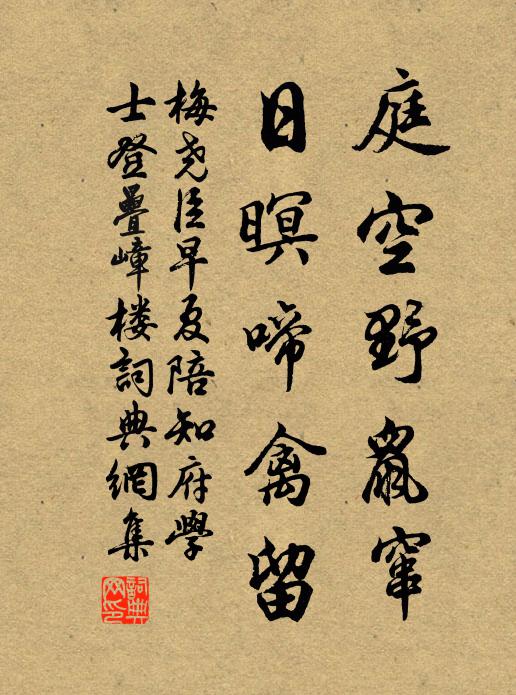 庭空野鼠窜
日暝啼禽留
梅尧臣早夏陪知府學
士登疊嶂楼詞典網集
詞典网印